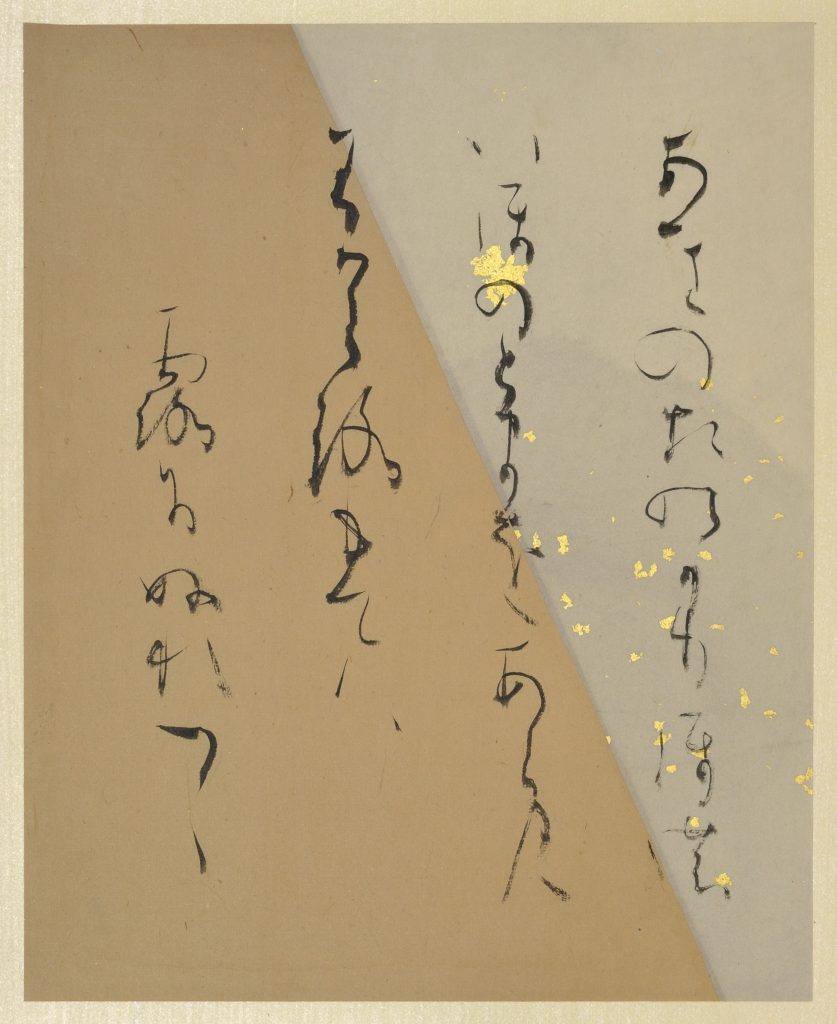 あきのたのかりほの
いほのとまをあらみ
わかころもてハ
露にぬれつゝ